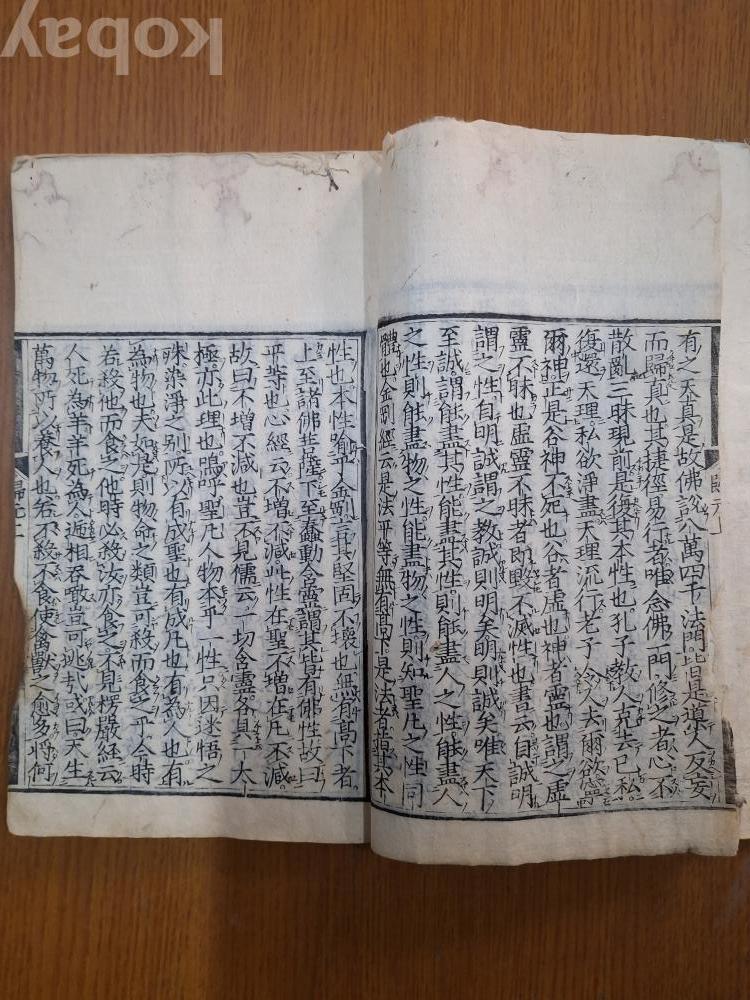 Kobay
有之天真是故佛說八萬四千法門皆是導人反妄
而歸真也其捷徑易行者唯念佛一門修之者心不
散亂三昧現前是復其本性也孔子教人克去已私
復還天理私欲淨盡天理流行老子令人夫爾欲
爾神正是谷神不死也谷者虛也神者靈也謂之虛
靈不昧也虛靈不昧者即不滅性也書云自誠明
謂之性自明誠謂之教誠則明矣明則誠矣唯天下
至誠謂能盡其性能盡其性則能盡人之性能盡人
之性則能盡物之性能盡物之性則知聖凡之性同
體也金剛經云是法平等無有高下是法者指其本
性也本性喻乎金剛言其堅固不壞也無有高下者
上至諸佛菩薩下至蠢動含靈謂其皆有佛性故曰
平等也心經云不增不減此性在聖不增在凡不減
故曰不增不減也豈不見儒云一切含靈各具一太
極亦此理也嗚呼聖凡人物本乎一性只因迷悟之
殊染淨之別所以有成聖也有成凡也有為人也有
為物也夫如是則物命之類豈可殺而食之乎今時
若殺他而食之他時必殺汝亦食之不見楞嚴經云
人死為羊羊死為人遞相吞噉豈可逃哉或曰天生
萬物所以養人也若不殺不食使禽獸愈多將何
歸元二